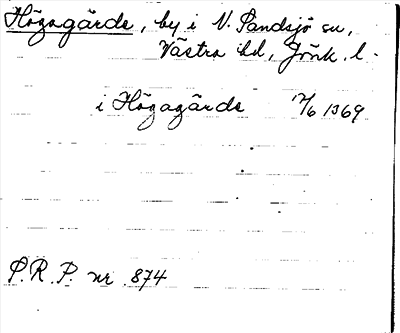 Högagärde, by i V. Sandsjö sn,
Västra hd, Jönk. l.
i Högagärde 7/6 1369
P.R.P. nr 874